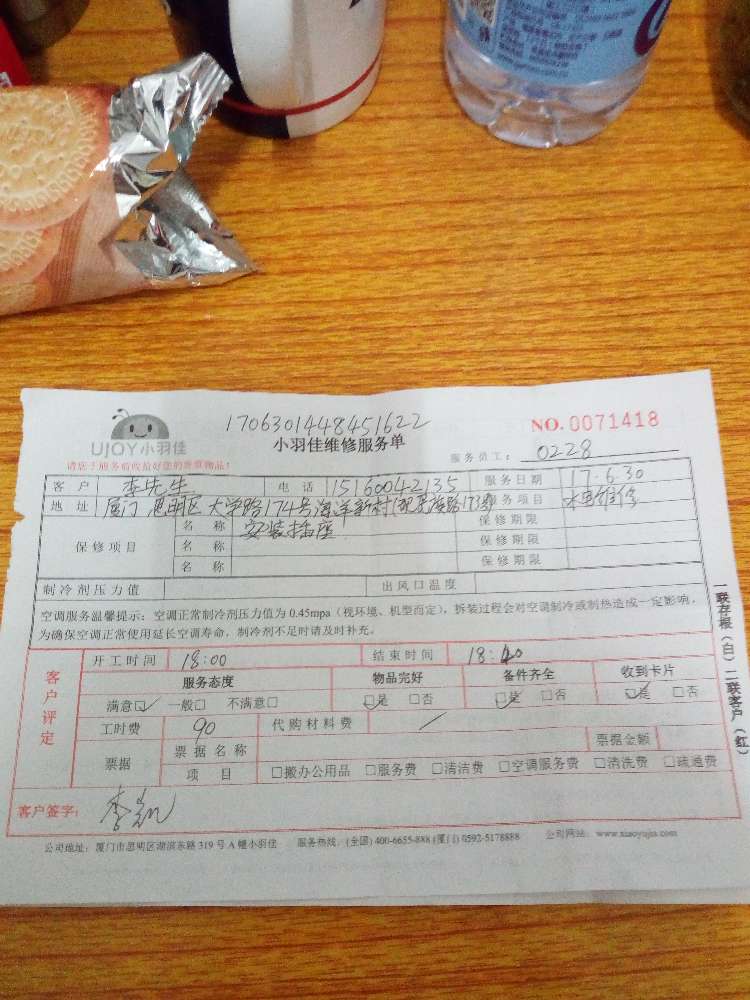 1706301448451622
UJOY小羽佳
小羽佳维修服务单
NO. 0071418
请您于服务前收拾好您的贵重物品!
服务员工: 0228
客户 李先生 电话 15160042135 服务日期 17.6.30
地址 厦门 思明区 大学路174号海洋新村 服务项目 水电维修
保修项目 名称 安装插座 保修期限
名称 保修期限
名称 保修期限
制冷剂压力值 出风口温度
空调服务温馨提示: 空调正常制冷剂压力值为 0.45mpa (视环境、机型而定), 拆装过程会对空调制冷或制热造成一定影响,
为确保空调正常使用延长空调寿命, 制冷剂不足时请及时补充。
客户评定
开工时间 18:00 结束时间 18:40
服务态度 物品完好 备件齐全 收到卡片
满意☑ 一般□ 不满意□ ☑是 □否 ☑是 □否 ☑是 □否
工时费 90 代购材料费 /
票据 票据名称 票据金额
项目 □搬办公用品 □服务费 □清洁费 □空调服务费 □清洗费 □疏通费
客户签字: 李
公司地址: 厦门市思明区湖滨东路 319 号 A 幢小羽佳 服务热线: (全国) 400-6655-888 (厦门) 0592-5178888 公司网站: www.xiaoyujia.com
一联存根(白) 二联客户(红)